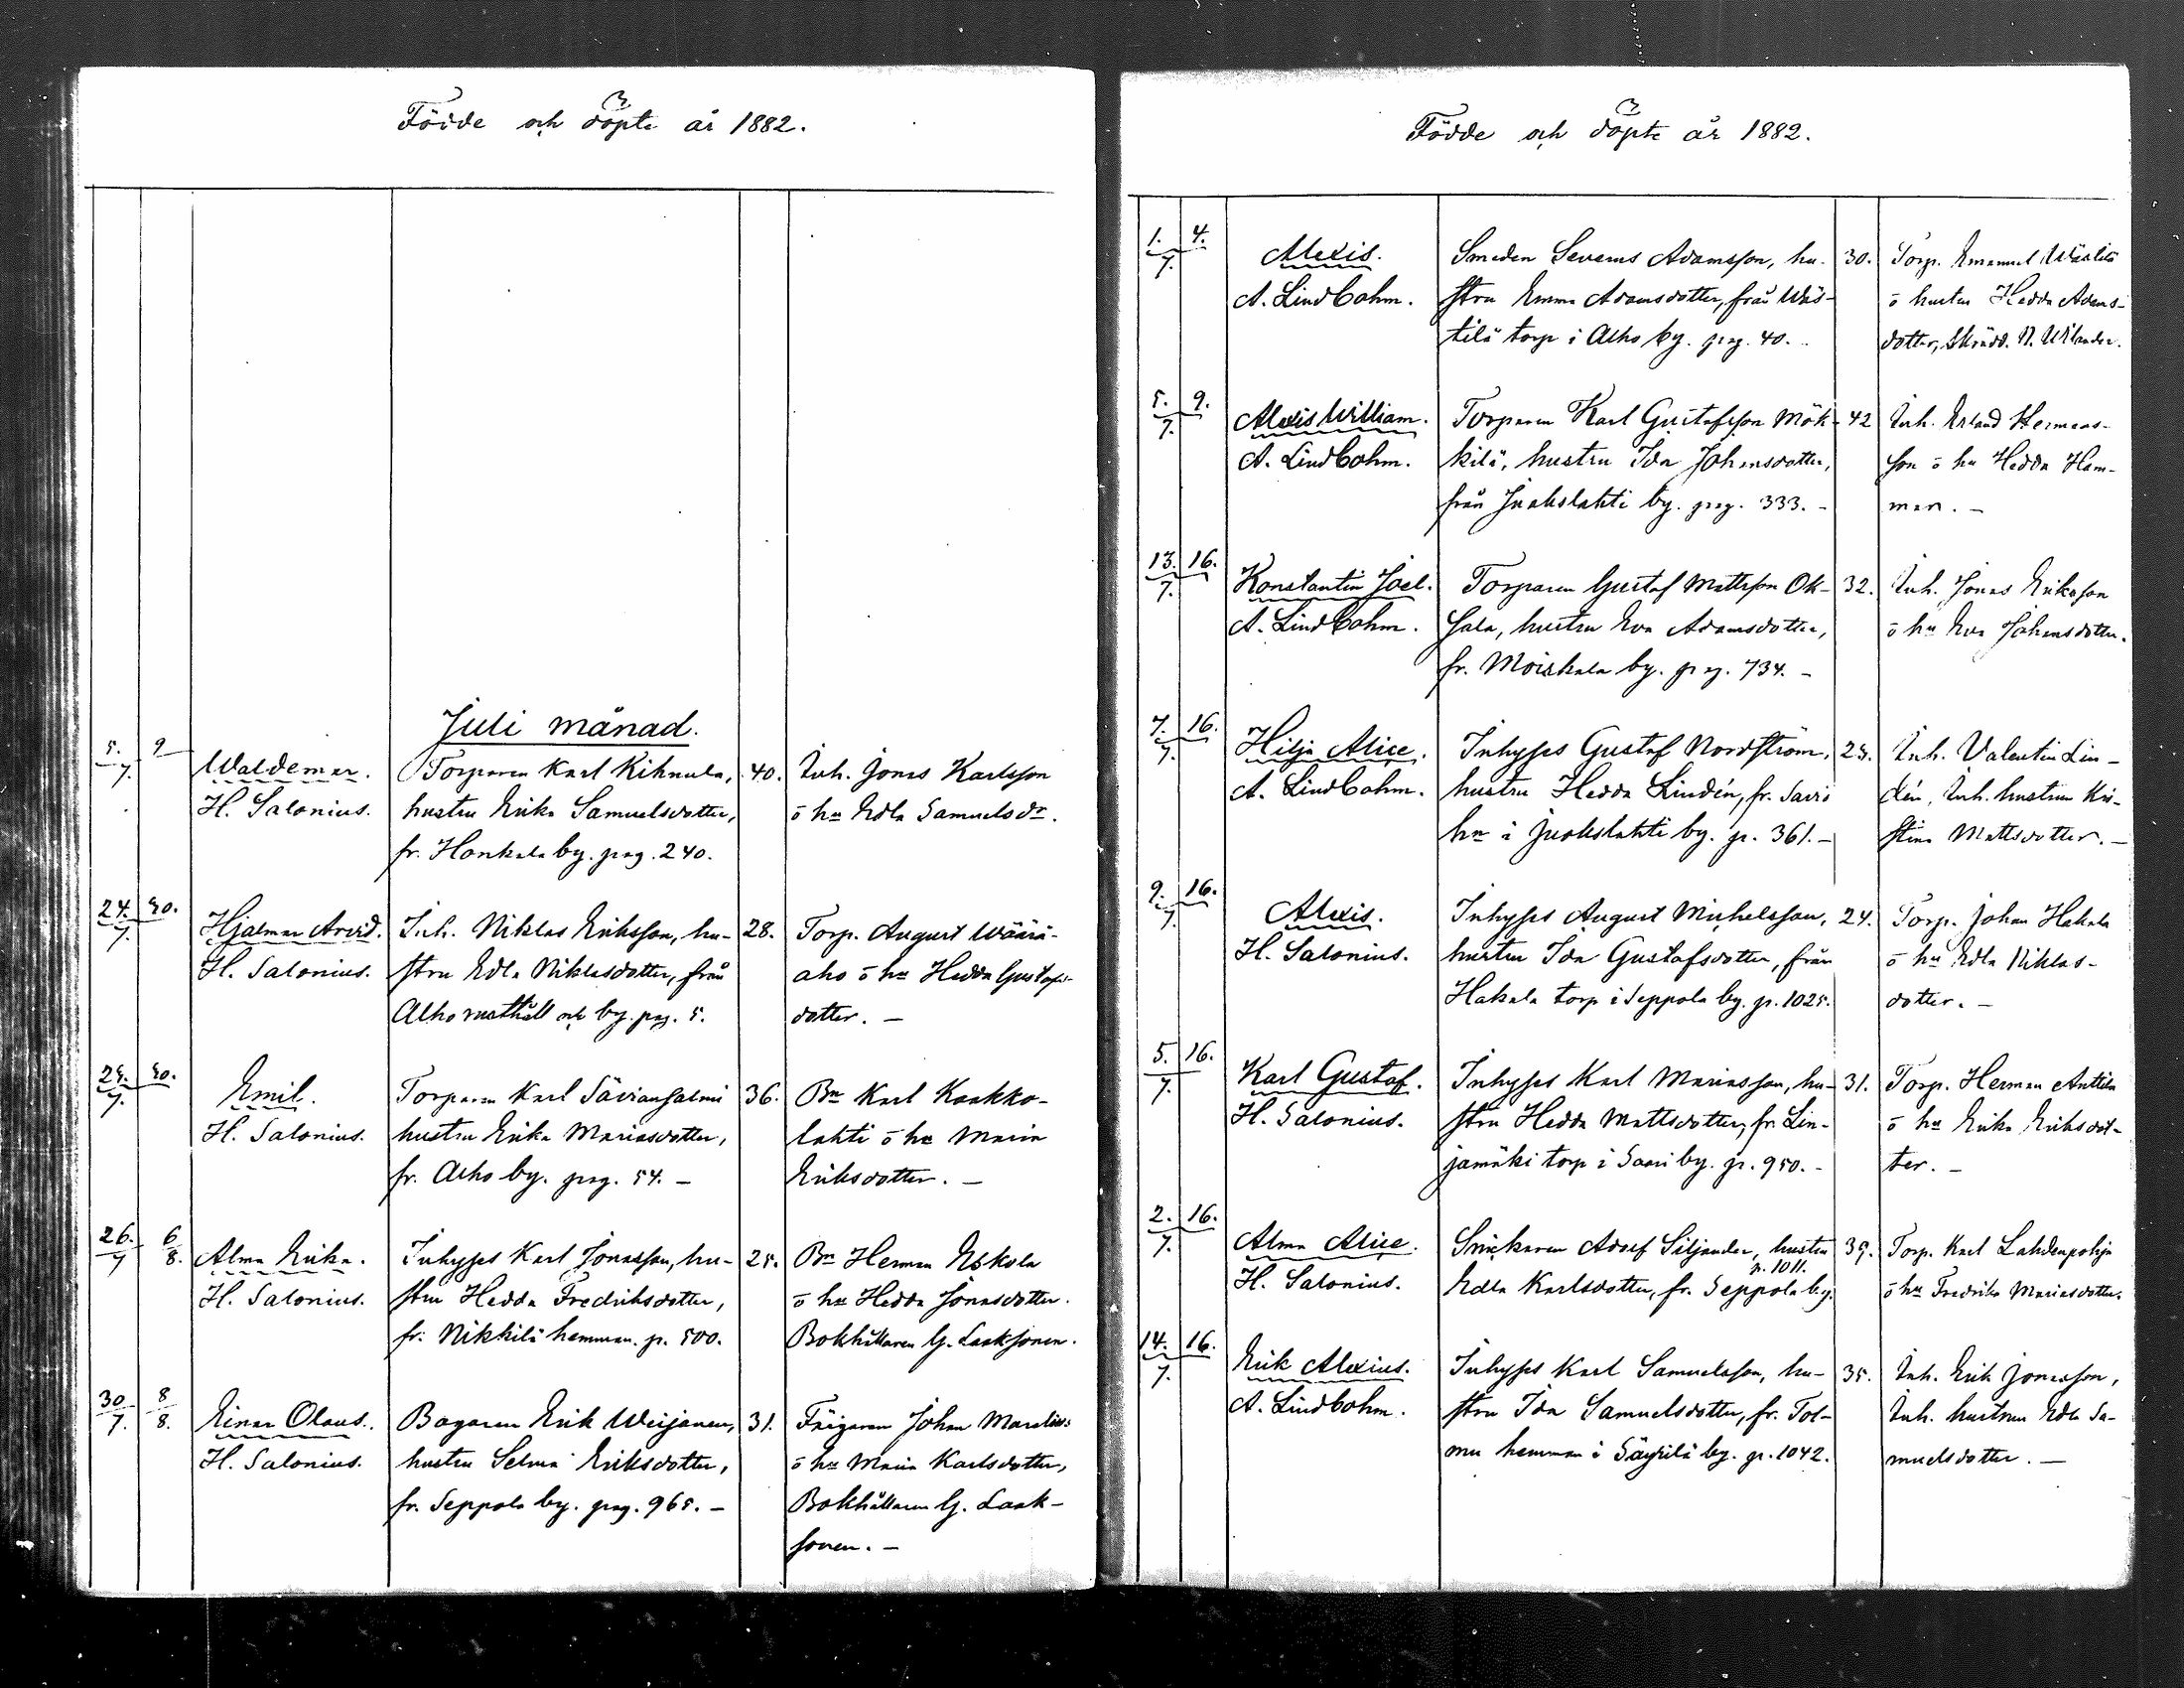 Födde och döpte år 1882.
Juli månad.
5. 9
7.
Waldemar.
H. Salonius.
Torparen Karl Kihnula,
hustru Erika Samuelsdotter,
fr. Honkala by. pag. 240.
40.
Inh. Jonas Karlsson
o hu Edla Samuelsdr.
24. 30.
7.
Hjalmar Arvid.
H. Salonius.
Inh. Niklas Eriksson, hu-
stru Edla Niklasdotter, från
Alho rusthåll och by. pag. 5.
28.
Torp. August Wäärä-
aho o hu Hedda Gustafs-
dotter. —
25. 30.
7.
Emil.
H. Salonius.
Torparen Karl Säviänsalmi
hustru Erika Mariasdotter,
fr. Alho by. pag. 54. —
36.
Bn Karl Kaakko-
lahti o hu Maria
Eriksdotter. —
26. 6
7 8.
Alma Erika.
H. Salonius.
Inhyses Karl Jonasson, hu-
stru Hedda Fredriksdotter,
fr. Nikkilä hemman. p. 500.
25.
Bn Herman Eskola
o hu Hedda Jonasdotter.
Bokhållaren G. Laaksonen.
30 8
7. 8.
Einar Olaus.
H. Salonius.
Bagaren Erik Weijanen,
hustru Selma Eriksdotter,
fr. Seppola by. pag. 965. —
31.
Färgaren Johan
o hu Maria Karlsdotter,
Bokhållaren G. Laak-
sonen. —
Födde och döpte år 1882.
1. 4.
7.
Alexis.
A. Lindbohm.
Smeden Severus Adamsson, hu-
stru Emma Adamsdotter, från Wäs-
tilä torp i Alho by. pag. 40.
30.
Torp. Emanuel
o hustru Hedda Adams-
dotter, Skrädd. N. Wilander.
5. 9.
7.
Alexis William.
A. Lindbohm.
Torparen Karl Gustafsson Mök-
kilä, hustru Ida Johansdotter,
från Juokslahti by. pag. 333. —
42
Inh. Erland Hermans-
son o hu Hedda Ham-
mar. —
13. 16.
7.
Konstantin Joel.
A. Lindbohm.
Torparen Gustaf Mattsson Ok-
sala, hustru Eva Adamsdotter,
fr. Moiskala by. pag. 734. —
32.
Inh. Jonas Eriksson
o hu Eva Johansdotter.
7. 16.
7.
Hilja Alice.
A. Lindbohm.
Inhyses Gustaf Nordström,
hustru Hedda Lindén, fr. Savio
hn i Juokslahti by. p. 361. —
25.
Inh. Valentin Lin-
dén, Inh. hustrun Kri-
stina Mattsdotter. —
9. 16.
7.
Alexis.
H. Salonius.
Inhyses August Michelsson,
hustru Ida Gustafsdotter, från
Hakala torp i Seppola by. p. 1025.
24.
Torp. Johan Hakala
o hu Edla Niklas-
dotter. —
5. 16.
7.
Karl Gustaf.
H. Salonius.
Inhyses Karl Mariasson, hu-
stru Hedda Mattsdotter, fr. Lin-
jamäki torp i Saari by. p. 950. —
31.
Torp. Herman Anttila
o hu Erika Eriksdot-
ter. —
2. 16.
7.
Alma Alice.
H. Salonius.
Snickaren Adolf Siljander, hustru
p. 1011.
Edla Karlsdotter, fr. Seppola by.
39.
Torp. Karl Lahdenpohja
o hu Fredrika Mariasdotter.
14. 16.
7.
Erik Alexius.
A. Lindbohm.
Inhyses Karl Samuelsson, hu-
stru Ida Samuelsdotter, fr. Tol-
mu hemman i Säyrilä by. p. 1042.
35.
Inh. Erik Jonasson,
Inh. hustrun Edla Sa-
muelsdotter. —